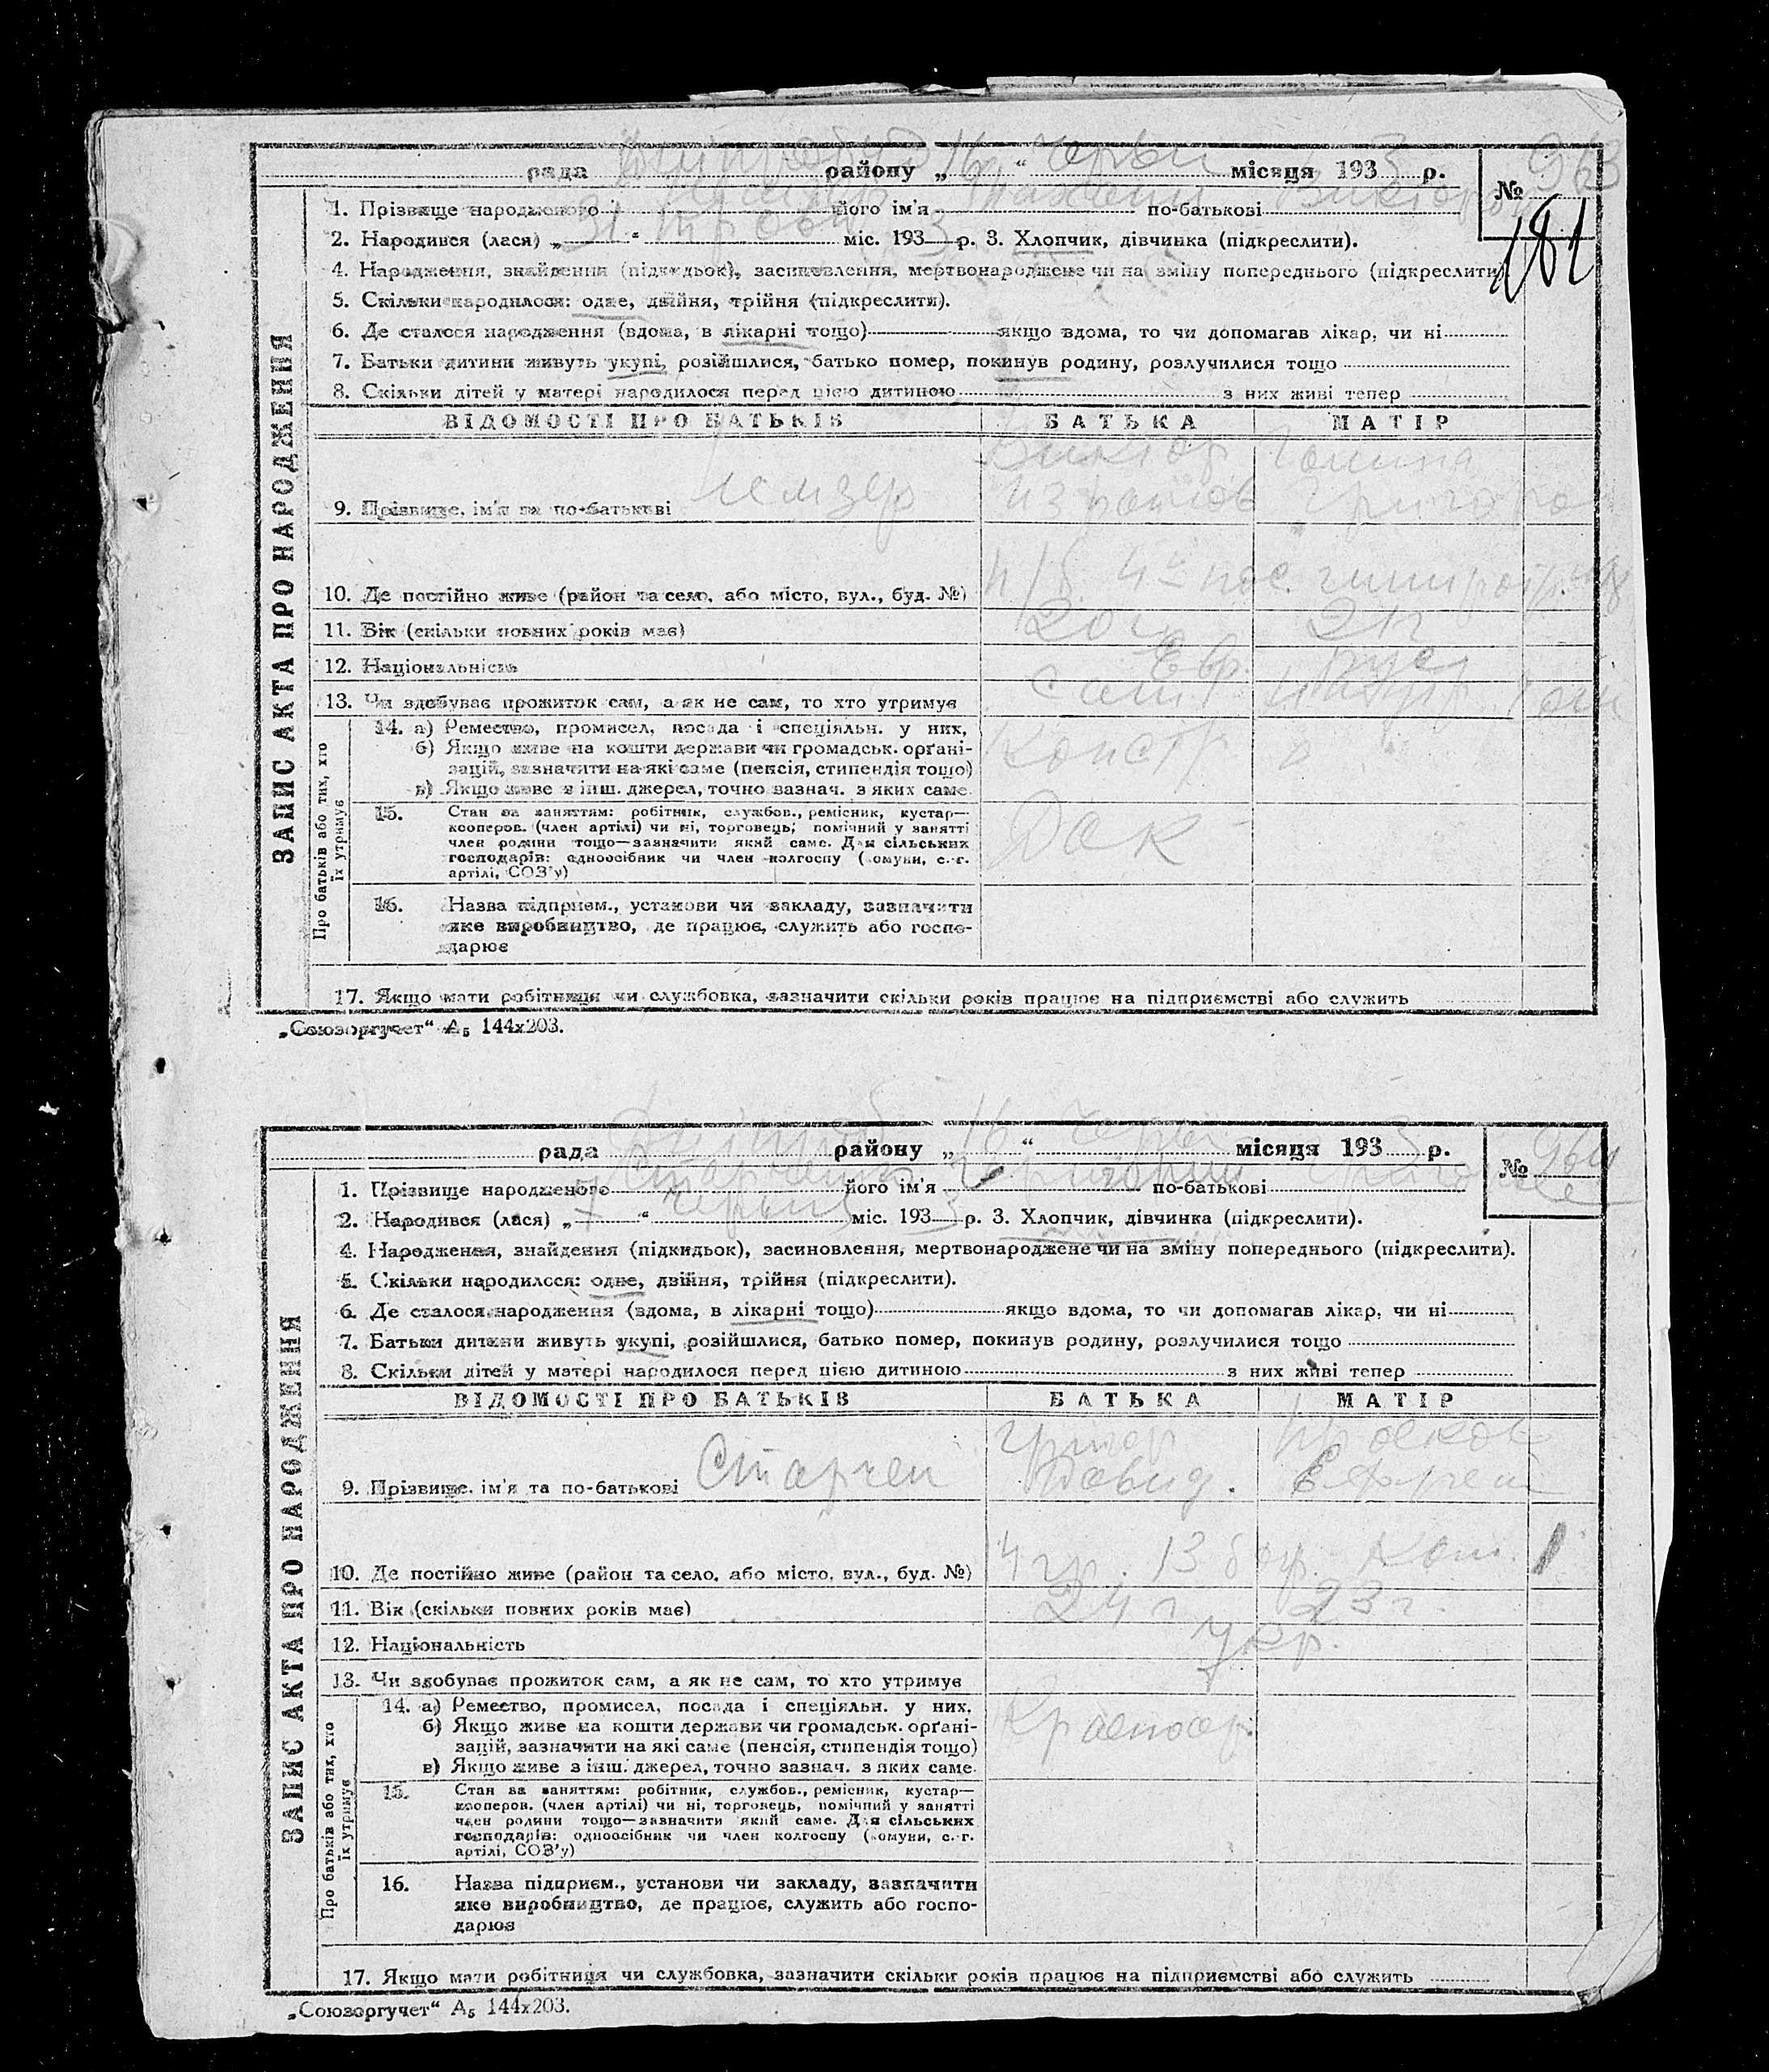 рада району „ 16 “ Червн місяця 193 3 р. № 963
1. Прізвище народженого його ім'я по-батькові
181
2. Народився (лася) „ 31 “ міс. 193 3 р. 3. Хлопчик, дівчинка (підкреслити).
4. Народження, знайдення (підкидьок), засиновлення, мертвонароджене чи на зміну попереднього (підкреслити).
5. Скільки народилося: одне, двійня, трійня (підкреслити).
6. Де сталося народження (вдома, в лікарні тощо) якщо вдома, то чи допомагав лікар, чи ні
7. Батьки дитини живуть укупі, розійшлися, батько помер, покинув родину, розлучилися тощо
8. Скільки дітей у матері народилося перед цією дитиною з них живі тепер
ЗАПИС АКТА ПРО НАРОДЖЕННЯ
ВІДОМОСТІ ПРО БАТЬКІВ БАТЬКА МАТІР
Виктор Галина
9. Прізвище, ім'я та по-батькові
10. Де постійно живе (район та село, або місто, вул., буд. №)
11. Вік (скільки повних років має)
12. Національність Євр. рус
13. Чи здобуває прожиток сам, а як не сам, то хто утримує сам
Про батьків або тих, хто їх утримує
14. а) Ремество, промисел, посада і спеціяльн. у них,
б) Якщо живе на кошти держави чи громадськ. орґані-
зацій, зазначити на які саме (пенсія, стипендія тощо)
в) Якщо живе з інш. джерел, точно зазнач. з яких саме
15. Стан за заняттям: робітник, службов., ремісник, кустар—
кооперов. (член артілі) чи ні, торговець, помічний у занятті
член родини тощо—зазначити який саме. Для сільських
господарів: одноосібник чи член колгоспу (комуни, с.-г.
артілі, СОЗ'у)
16. Назва підприєм., установи чи закладу, зазначити
яке виробництво, де працює, служить або госпо-
дарює
17. Якщо мати робітниця чи службовка, зазначити скільки років працює на підприємстві або служить
„Союзоргучет“ А₅ 144х203.
рада району „ 16 “ місяця 193 3 р. № 964
1. Прізвище народженого його ім'я по-батькові
2. Народився (лася) „ 7 “ міс. 193 3 р. 3. Хлопчик, дівчинка (підкреслити).
4. Народження, знайдення (підкидьок), засиновлення, мертвонароджене чи на зміну попереднього (підкреслити).
5. Скільки народилося: одне, двійня, трійня (підкреслити).
6. Де сталося народження (вдома, в лікарні тощо) якщо вдома, то чи допомагав лікар, чи ні
7. Батьки дитини живуть укупі, розійшлися, батько помер, покинув родину, розлучилися тощо
8. Скільки дітей у матері народилося перед цією дитиною з них живі тепер
ЗАПИС АКТА ПРО НАРОДЖЕННЯ
ВІДОМОСТІ ПРО БАТЬКІВ БАТЬКА МАТІР
Григор
9. Прізвище, ім'я та по-батькові Старчен Давид.
10. Де постійно живе (район та село, або місто, вул., буд. №) 4 гр. 13
11. Вік (скільки повних років має) 24 г. 23 г.
12. Національність Укр.
13. Чи здобуває прожиток сам, а як не сам, то хто утримує
Про батьків або тих, хто їх утримує
14. а) Ремество, промисел, посада і спеціяльн. у них,
б) Якщо живе на кошти держави чи громадськ. орґані-
зацій, зазначити на які саме (пенсія, стипендія тощо)
в) Якщо живе з інш. джерел, точно зазнач. з яких саме
15. Стан за заняттям: робітник, службов., ремісник, кустар—
кооперов. (член артілі) чи ні, торговець, помічний у занятті
член родини тощо—зазначити який саме. Для сільських
господарів: одноосібник чи член колгоспу (комуни, с.-г.
артілі, СОЗ'у)
16. Назва підприєм., установи чи закладу, зазначити
яке виробництво, де працює, служить або госпо-
дарює
17. Якщо мати робітниця чи службовка, зазначити скільки років працює на підприємстві або служить
„Союзоргучет“ А₅ 144х203.